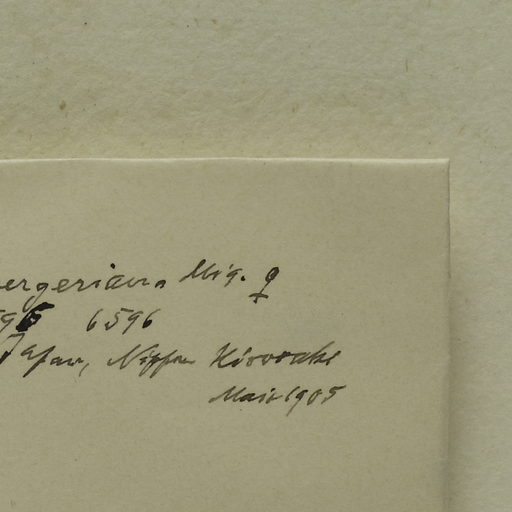 ergeriana Miq. ♀
96 6596
Japan, Nippon Hirosaki
Mai 1905